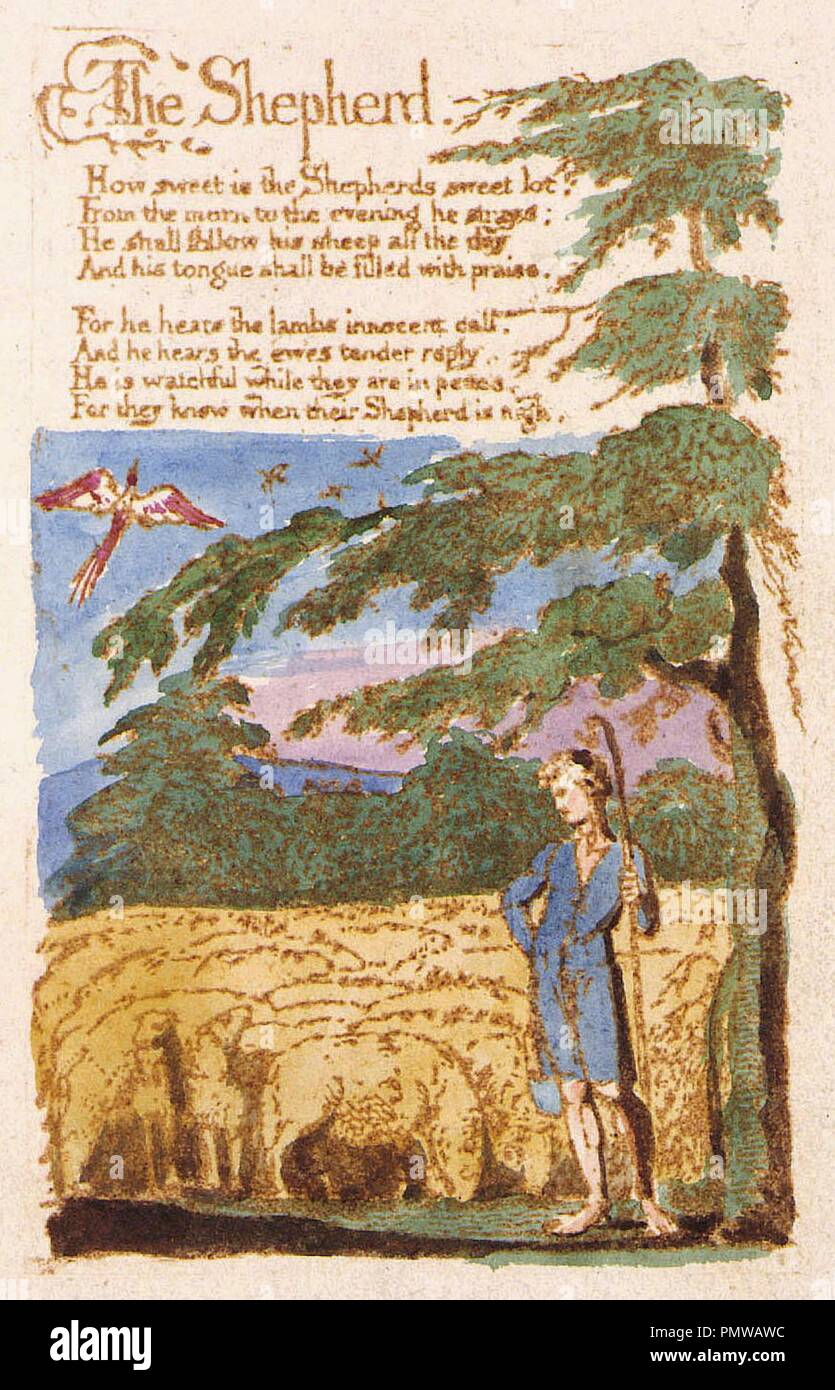 The Shepherd.
How sweet is the Shepherds sweet lot!
From the morn to the evening he strays;
He shall follow his sheep all the day
And his tongue shall be filled with praise.
For he hears the lambs innocent call.
And he hears the ewes tender reply.
He is watchful while they are in peace,
For they know when their Shepherd is nigh.
alamy
alamy
alamy
a
a
a
alamy
Image ID: PMWAWC
www.alamy.com